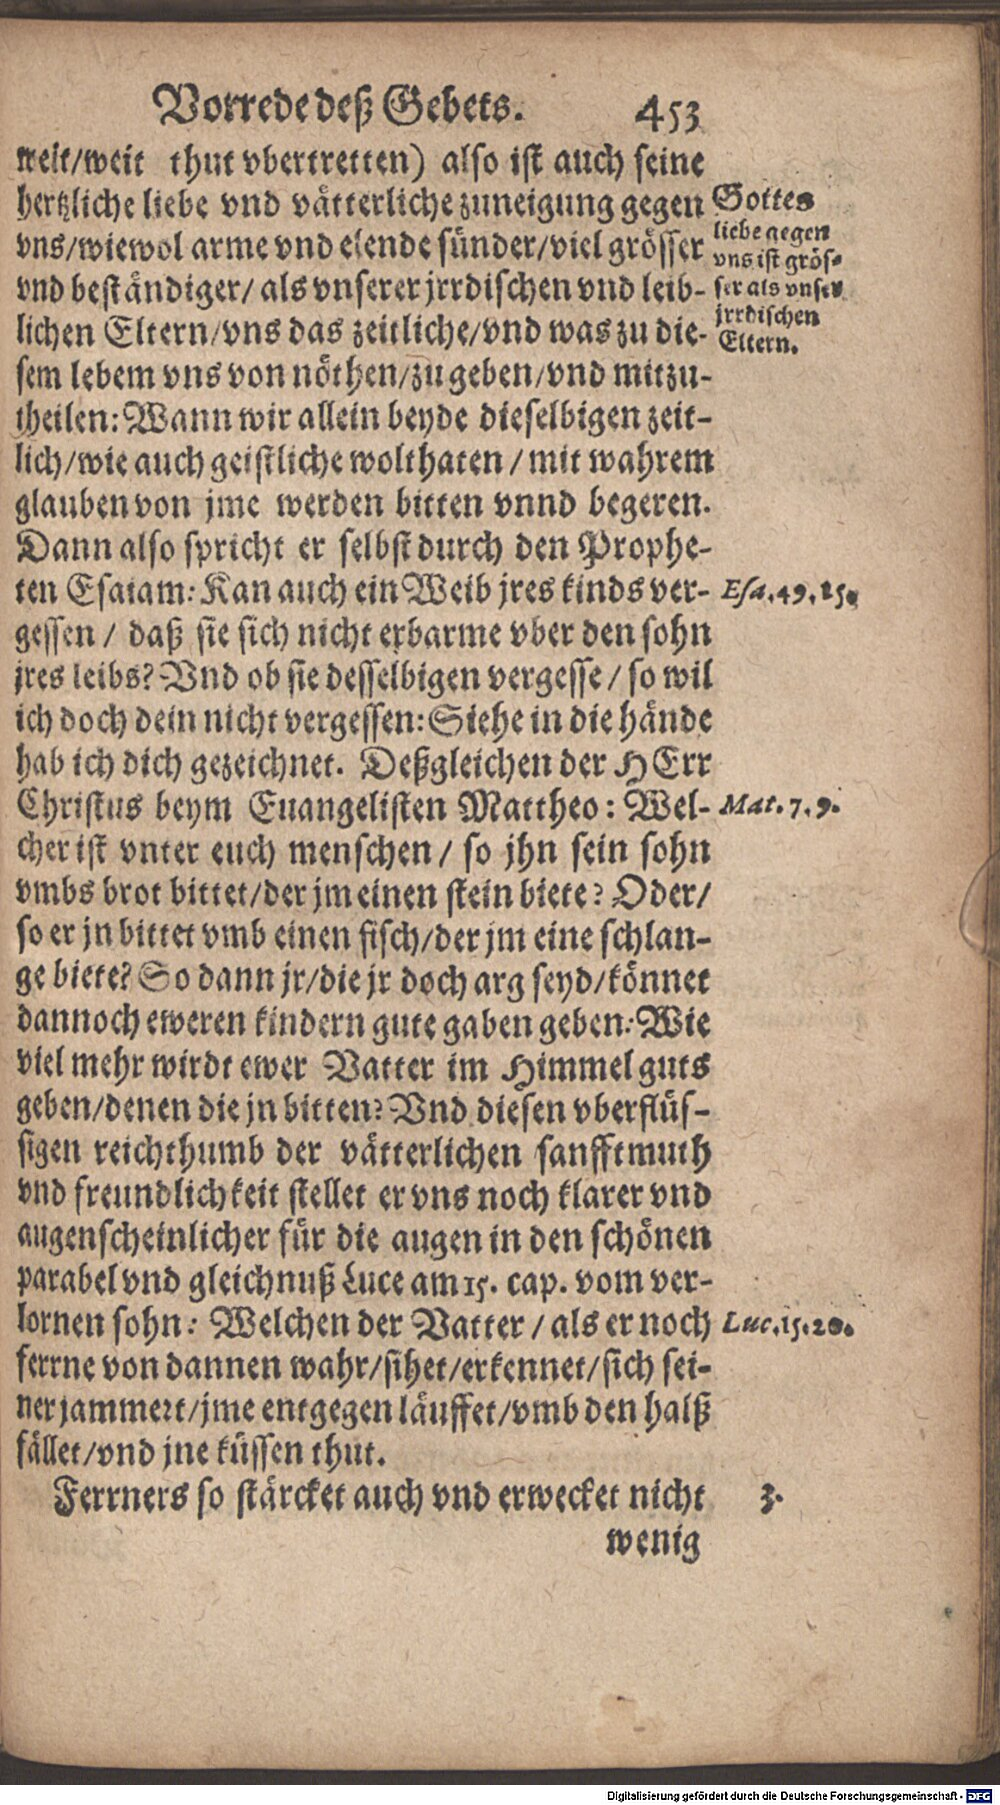 Vorrede deß Gebets. 453
welt/weit thut vbertretten) also ist auch seine
hertzliche liebe vnd vätterliche zuneigung gegen
vns/wiewol arme vnd elende sünder/viel grösser
vnd beständiger/ als vnserer jrrdischen vnd leib-
lichen Eltern/vns das zeitliche/vnd was zu die-
sem lebem vns von nöthen/zu geben/vnd mitzu-
theilen: Wann wir allein beyde dieselbigen zeit-
lich/wie auch geistliche wolthaten / mit wahrem
glauben von jme werden bitten vnnd begeren.
Dann also spricht er selbst durch den Prophe-
ten Esaiam: Kan auch ein Weib jres kinds ver-
gessen / daß sie sich nicht erbarme vber den sohn
jres leibs? Vnd ob sie desselbigen vergesse / so wil
ich doch dein nicht vergessen: Siehe in die hände
hab ich dich gezeichnet. Deßgleichen der HErr
Christus beym Euangelisten Mattheo: Wel-
cher ist vnter euch menschen / so jhn sein sohn
vmbs brot bittet/der jm einen stein biete? Oder/
so er jn bittet vmb einen fisch/der jm eine schlan-
ge biete? So dann jr/die jr doch arg seyd/könnet
dannoch eweren kindern gute gaben geben: Wie
viel mehr wirdt ewer Vatter im Himmel guts
geben/denen die jn bitten? Vnd diesen vberflüs-
sigen reichthumb der vätterlichen sanfftmuth
vnd freundlichkeit stellet er vns noch klarer vnd
augenscheinlicher für die augen in den schönen
parabel vnd gleichnuß Luce am 15. cap. vom ver-
lornen sohn: Welchen der Vatter / als er noch
ferrne von dannen wahr/sihet/erkennet/sich sei-
ner jammert/jme entgegen läuffet/vmb den halß
fället/vnd jne küssen thut.
Ferrners so stärcket auch vnd erwecket nicht
wenig
Gottes
liebe gegen
vns ist grös-
ser als vnser
jrrdischen
Eltern.
Esa.49.15.
Mat.7.9.
Luc.15.20.
3.
Digitalisierung gefördert durch die Deutsche Forschungsgemeinschaft - DFG